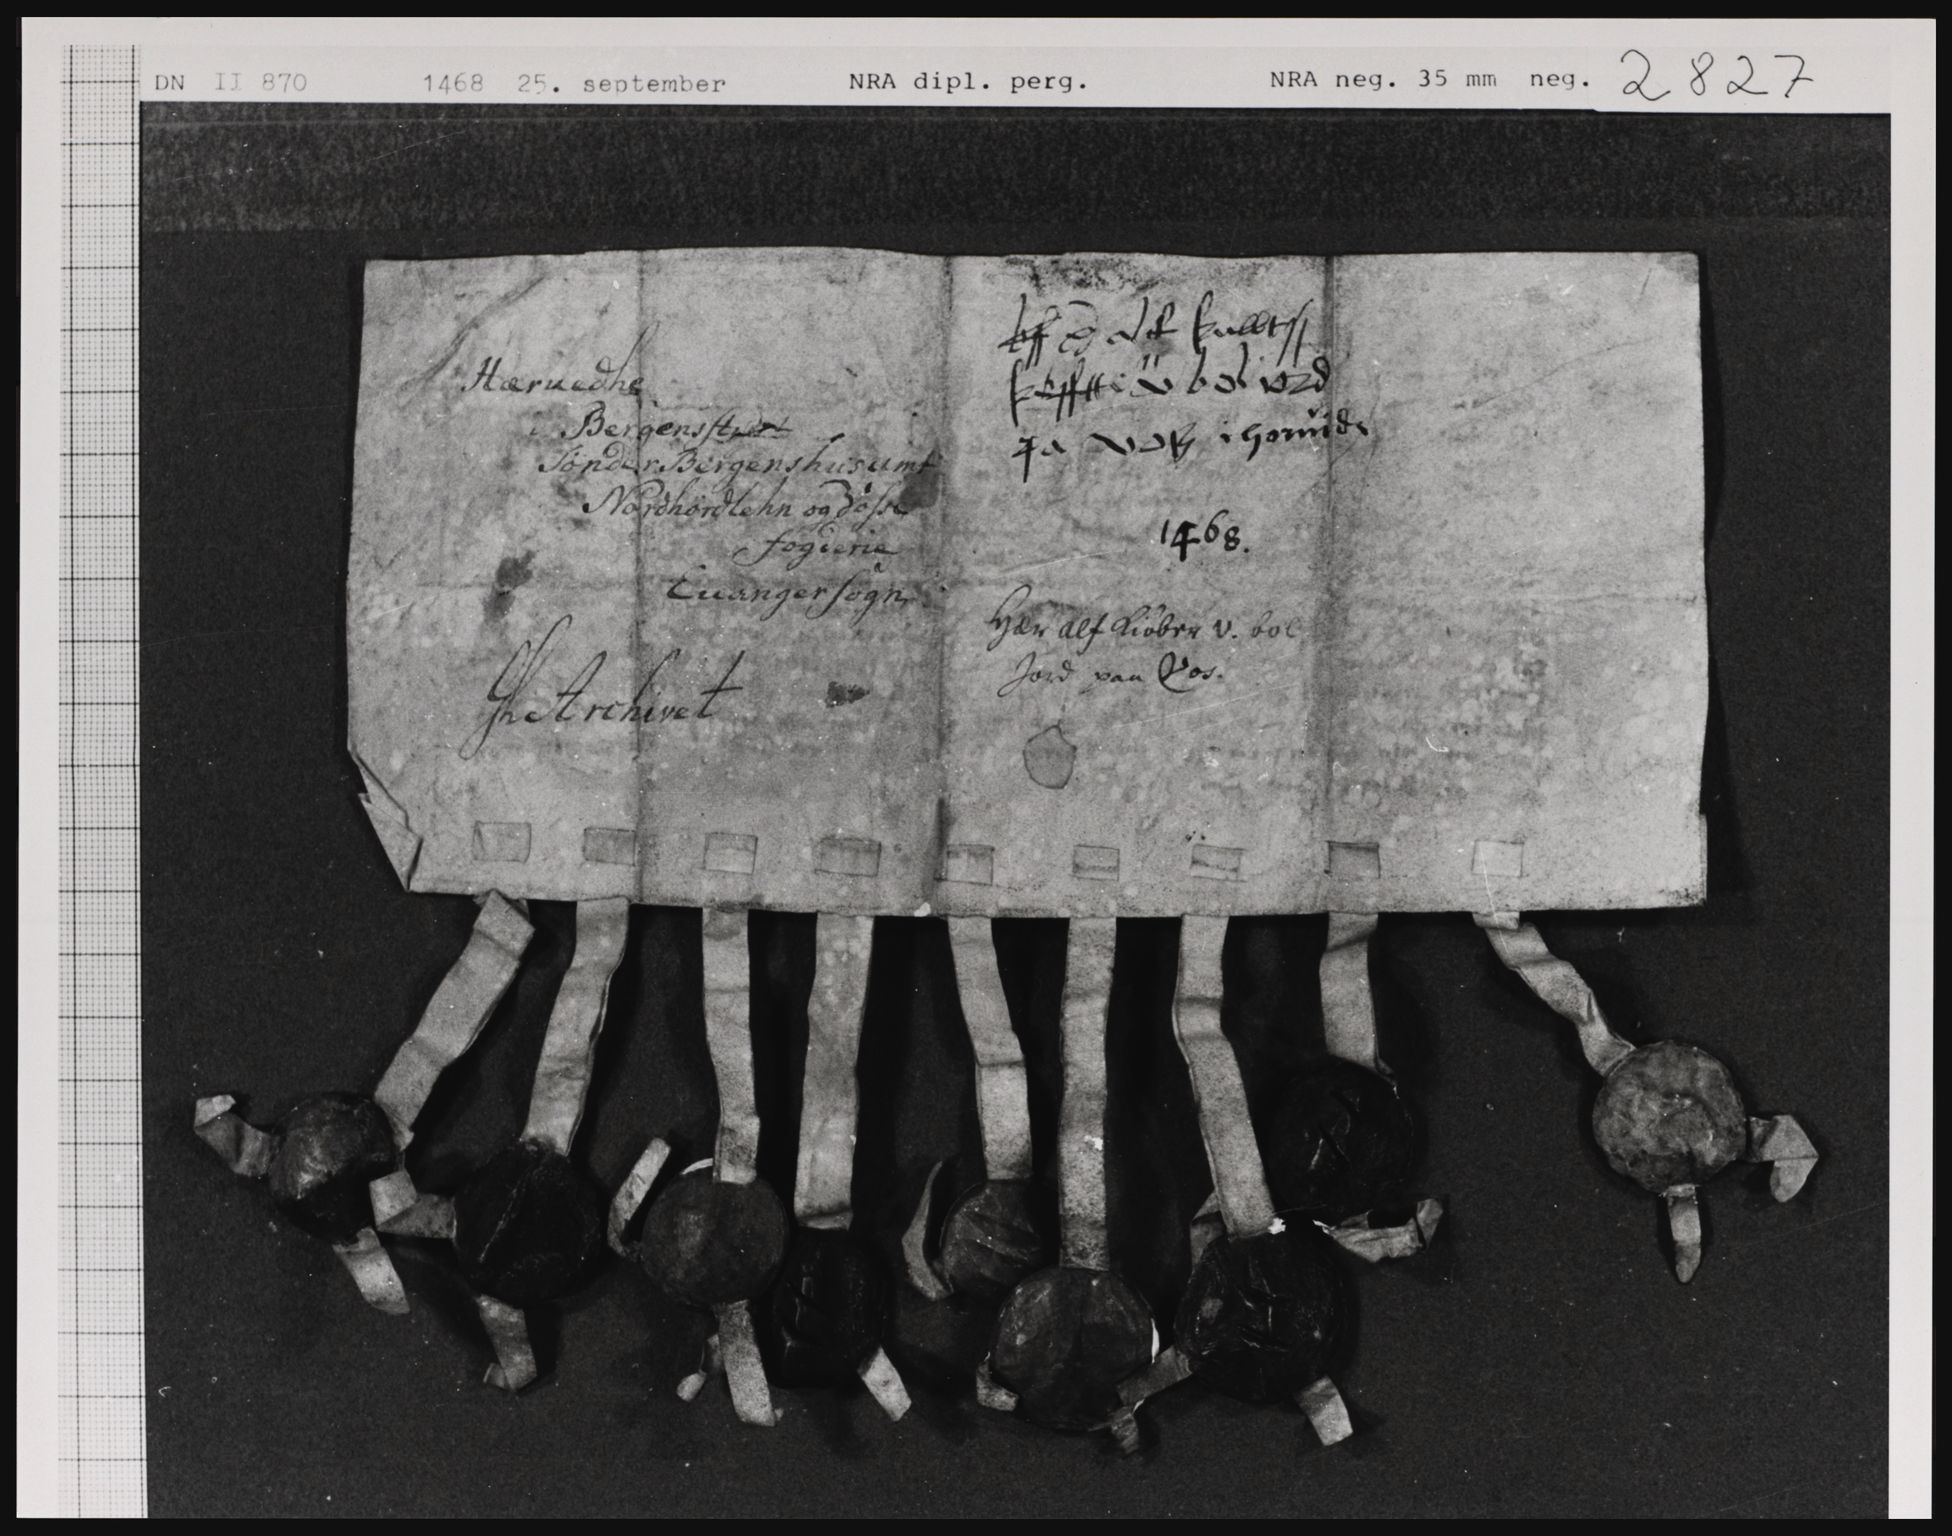 DN II 870 1468 25. september NRA dipl. perg. NRA neg. 35 mm neg. 2827
Hæruedhe
i Bergens stift
Sønder Bergenshus amt
Nordhordlehn og Vosse
fogderie
Euanger sogn
Archivet
alff
v bol iord
pa vos i
1468.
Hær alf kiøber v. bol
Jord paa Vos.